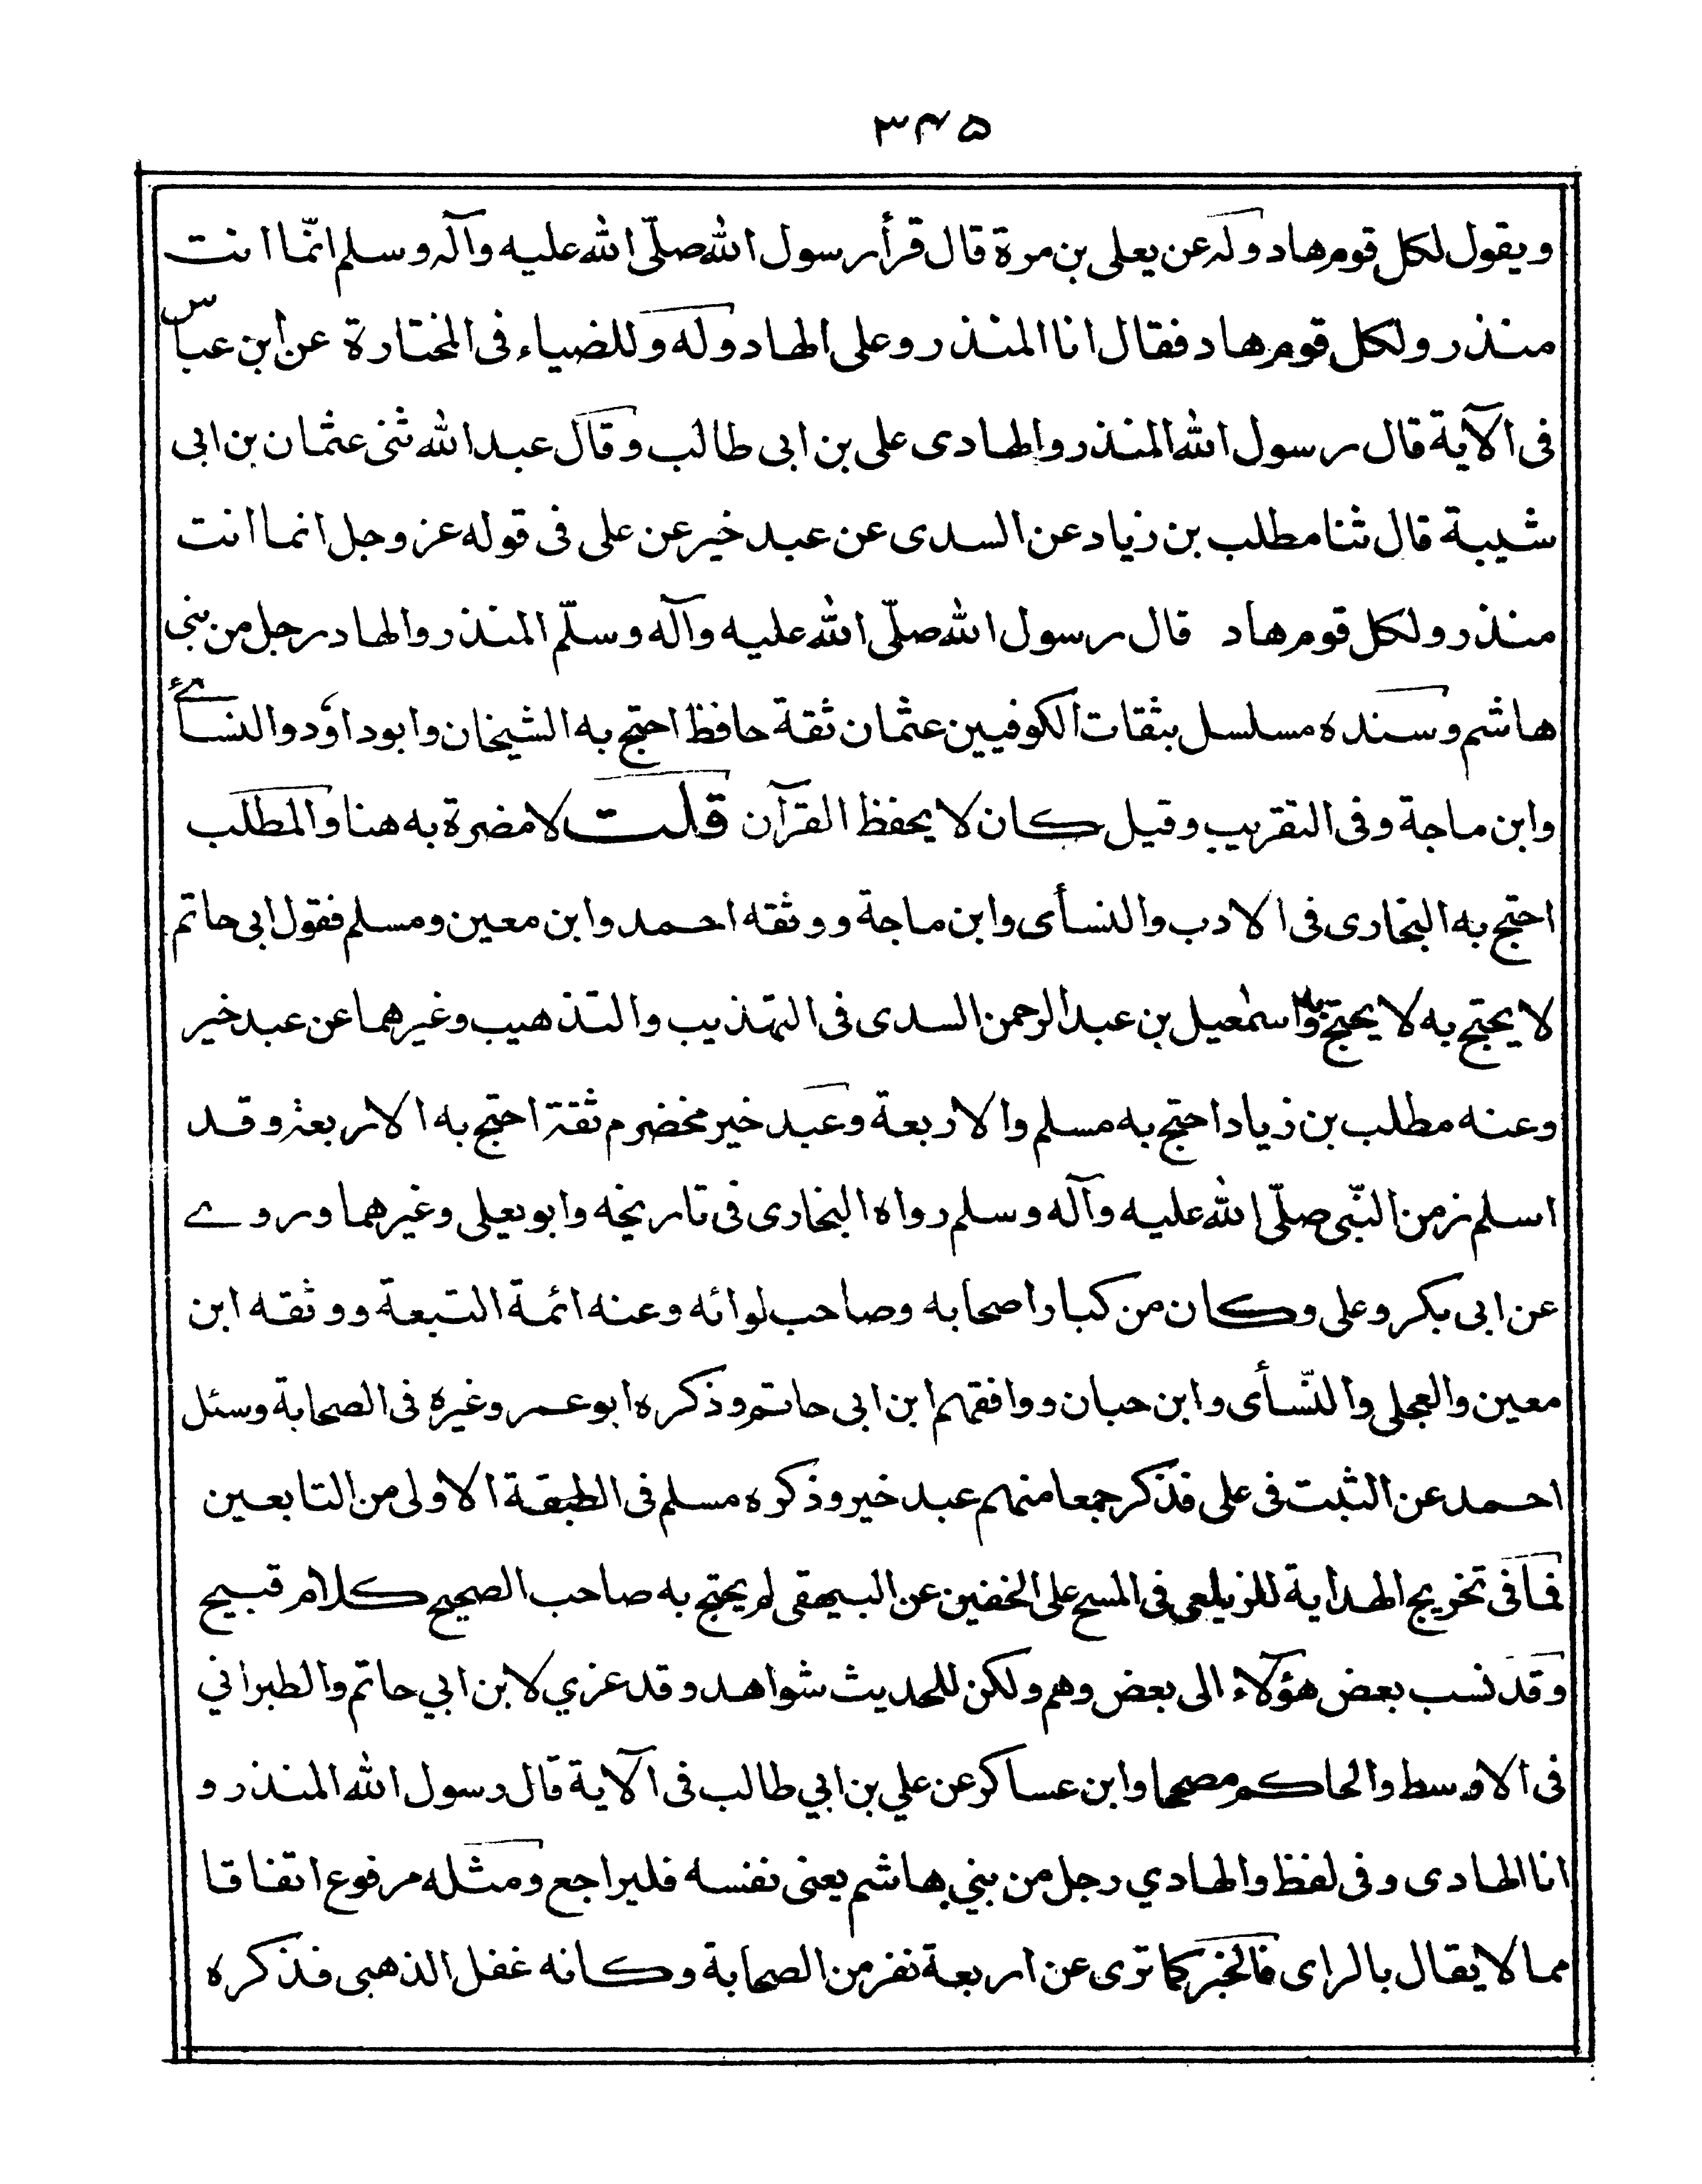 ۳۴۵
ويقول لكل قوم هاد وله عن يعلى بن مرة قال قرأ رسول الله صلّى الله عليه وآله وسلم انّما انت
منذر ولكل قوم هاد فقال انا المنذر وعلى الهاد وله وللضياء فى المختارة عن ابن عباس
فى الآية قال رسول الله المنذر والهادى على بن ابى طالب وقال عبد الله ثنى عثمان بن ابى
شيبة قال ثنا مطلب بن زياد عن السدى عن عبد خير عن على فى قوله عز وجل انما انت
منذر ولكل قوم هاد قال رسول الله صلّى الله عليه وآله وسلّم المنذر والهاد رجل من بنى
هاشم وسنده مسلسل بثقات الكوفيين عثمان ثقة حافظ احتج به الشيخان وابو داؤد والنسائے
وابن ماجة وفى التقريب وقيل كان لا يحفظ القرآن قلت لا مضرة به هنا والمطلب
احتج به البخارى فى الادب والنسأى وابن ماجة ووثقه احمد وابن معين ومسلم فقول ابى حاتم
لا يحتج به لا يحتج به واسمٰعيل بن عبد الرحمن السدى فى التهذيب والتذهيب وغيرهما عن عبد خير
وعنه مطلب بن زياد احتج به مسلم والاربعة وعبد خير مخضرم ثقة احتج به الاربعة وقد
اسلم زمن النبّى صلّى الله عليه وآله وسلم رواه البخارى فى تاريخه وابو يعلى وغيرهما وروے
عن ابى بكر وعلى وكان من كبار اصحابه وصاحب لوائه وعنه ائمة التبعة ووثقه ابن
معين والعجلى والنّسأى وابن حبان ووافقهم ابن ابى حاتم وذكره ابو عمر وغيره فى الصحابة وسئل
احمد عن الثبت فى على فذكر جمعا منهم عبد خير وذكره مسلم فى الطبقة الاولى من التابعين
فما فى تخريج الهداية للزيلعى فى المسح على الخفين عن البيهقى لم يحتج به صاحب الصحيح كلام قبيح
وقد نسب بعض هؤلاء الى بعض وهم ولكن للحديث شواهد وقد عزي لابن ابي حاتم والطبراني
فى الاوسط والحاكم مصححا وابن عساكر عن علي بن ابي طالب فى الآية قال رسول الله المنذر و
انا الهادى وفى لفظ والهادي رجل من بني هاشم يعنى نفسه فليراجع ومثله مرفوع اتفاقا
مما لا يقال بالراى فالخبر كما ترى عن اربعة نفر من الصحابة وكانه غفل الذهبى فذكره